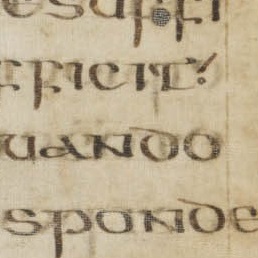 esuffi
fficit
uando
sponde